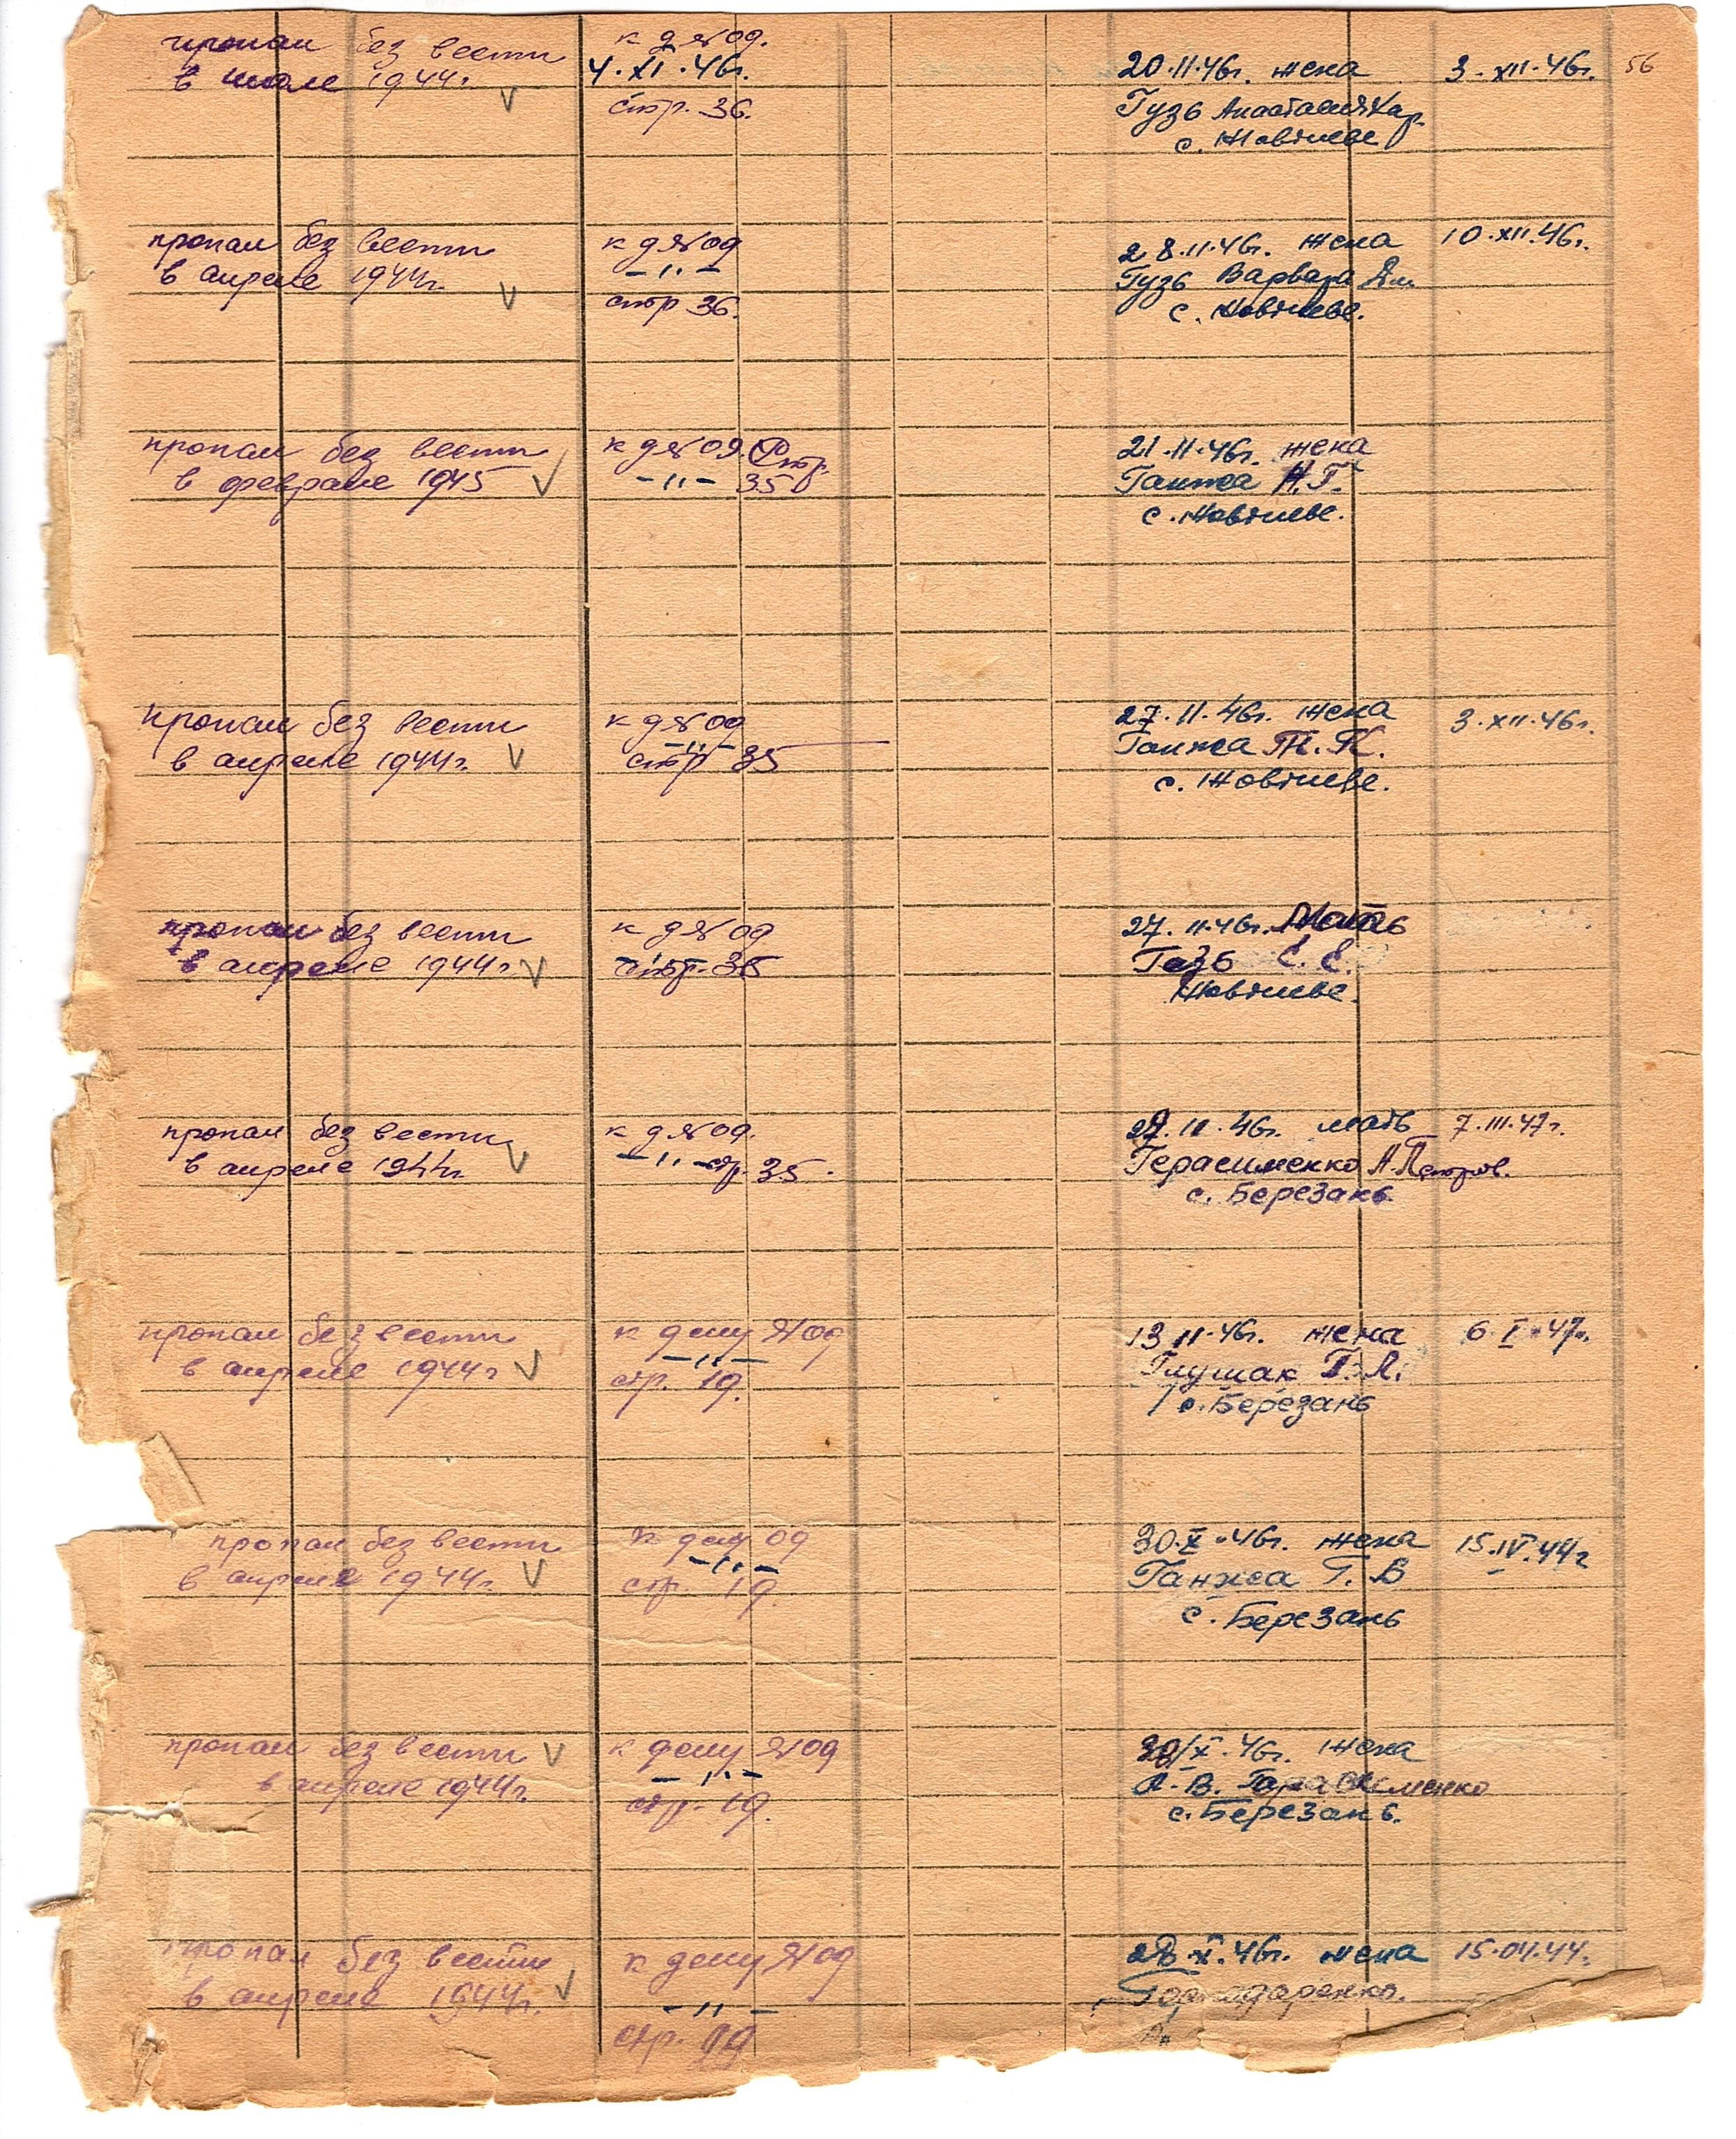 пропал без вести
в июле 1944г.
к д №09.
4.XI.46г.
стр. 36.
20.11.46г. жена
Гузь Анастасия Кар.
с. Жовтневе
3.XII.46г.
56
пропал без вести
в апреле 1944г.
к д №09
–"–
стр 36.
28.11.46г. жена
Гузь Варвара
с. Жовтневе.
10.XII.46г.
пропал без вести
в феврале 1945
к д №09. стр.
–"– 35
21.11.46г. жена
Ганжа Н.Г.
с. Жовтневе.
пропал без вести
в апреле 1944г.
к д №09
–"–
стр 35
27.11.46г. жена
Ганжа
с. Жовтневе.
3.XII.46г.
пропал без вести
в апреле 1944г.
к д №09
стр.
27.11.46г. мать
Е. Е.
Жовтневе.
пропал без вести
в апреле 1944г.
к д №09.
–"– стр. 35.
11.46г. мать
Герасименко А. Петров.
с. Березань
7.III.47г.
пропал без вести
в апреле 1944г
к делу №09
–"–
стр. 19.
13 11.46г. жена
Глушак Г. Л.
с. Березань
6.I.47г.
пропал без вести
в апреле 1944г.
к делу 09
–"–
стр. 19.
30.X.46г. жена
Ганжа Г. В
с. Березань
15.IV.44г
пропал без вести
в апреле 1944г.
к делу №09
–"–
стр. 19.
X.46г. жена
В.
с. Березань.
пропал без вести
в апреле 1944г.
к делу №09
–"–
стр.
X.46г. жена
15.04.44.